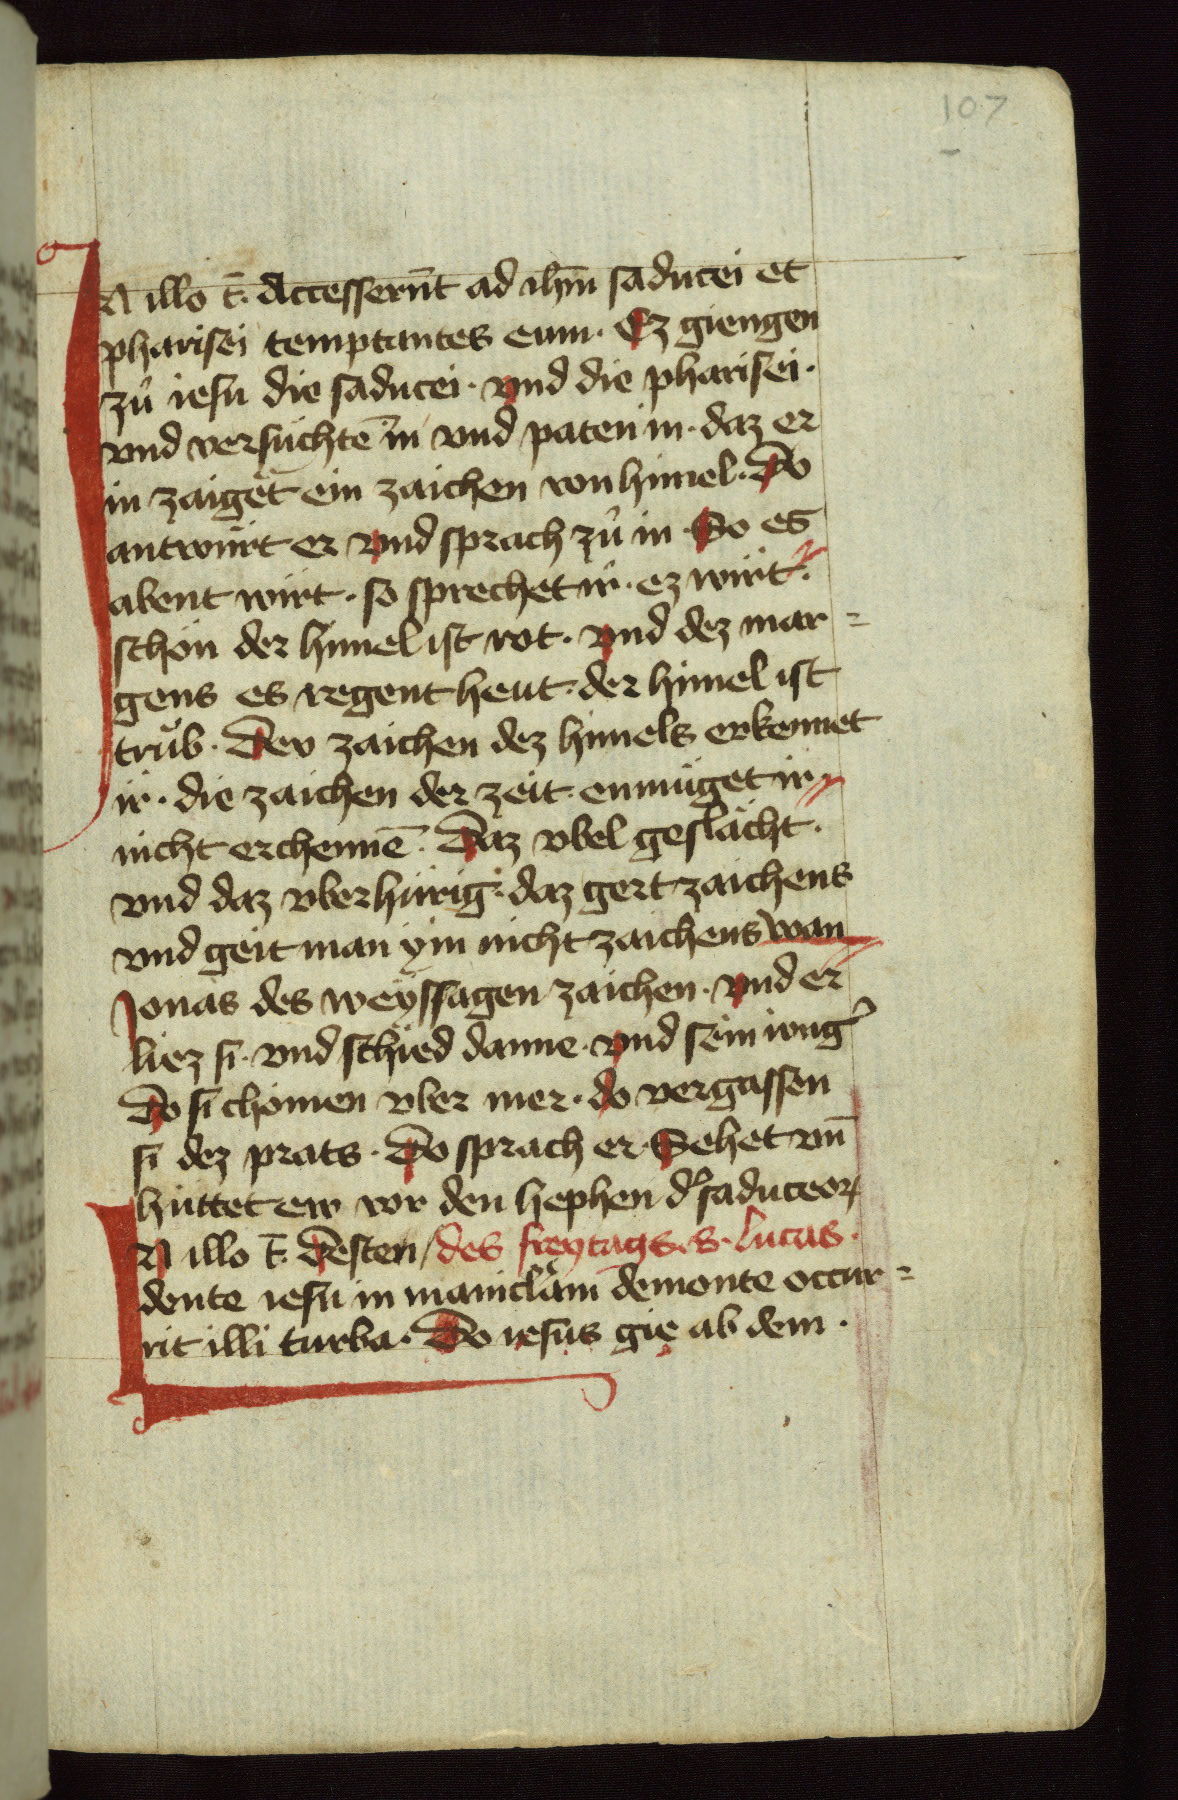 107
IN illo t̄. Accesserūnt ad ihm̄ saducei et
pharisei temptantes eum. Ez giengen
zů iesu die saducei. vnd die pharisei.
vnd versuchtē in vnd paten in. daz er
in zaiget ein zaichen von himel. Do
antwurt er vnd sprach zů in. So es
abent wirt. so sprechet ir. ez wirt.
schon der himel ist rot. vnd dez mar=
gens es regent heut. der himel ist
trůb. Dev zaichen dez himels erkennet
ir. die zaichen der zeit. enmuget ir
nicht erchennē. Daz vbel geslächt.
vnd daz vberhurig. daz gert zaichens
vnd geit man ym nicht zaichens wan
Jonas des weyssagen zaichen. vnd er
liez si. vnd schied danne. vnd sein iung̉
Do si chomen vber mer. do vergassen
si dez prats. Do sprach er. Sehet vn̄
huttet ew vor den hephen d̉ saduceoꝝ
IN illo t̄. Desten / des freytags. s. lucas.
dente iesu in maniclam demonte occur=
rit illi turba. Do iesus gie ab dem.